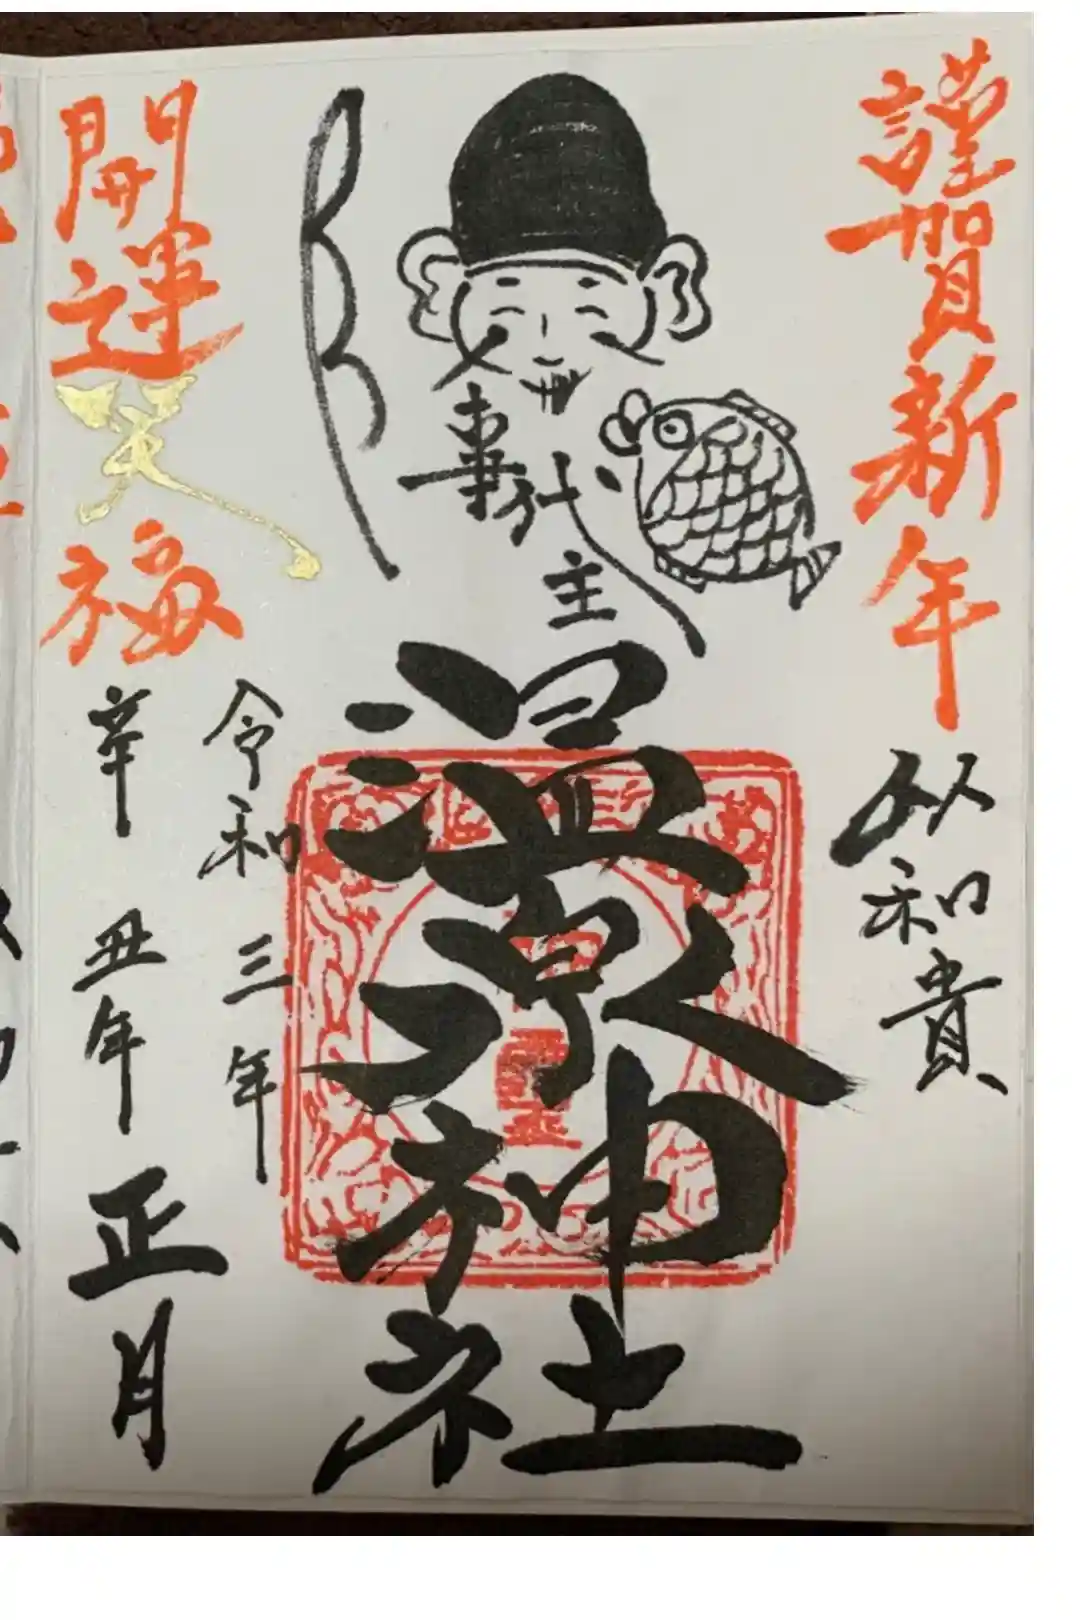 謹賀新年
以和貴
事代主
温泉神社
令和三年
辛丑年
正月
開運
笑
福